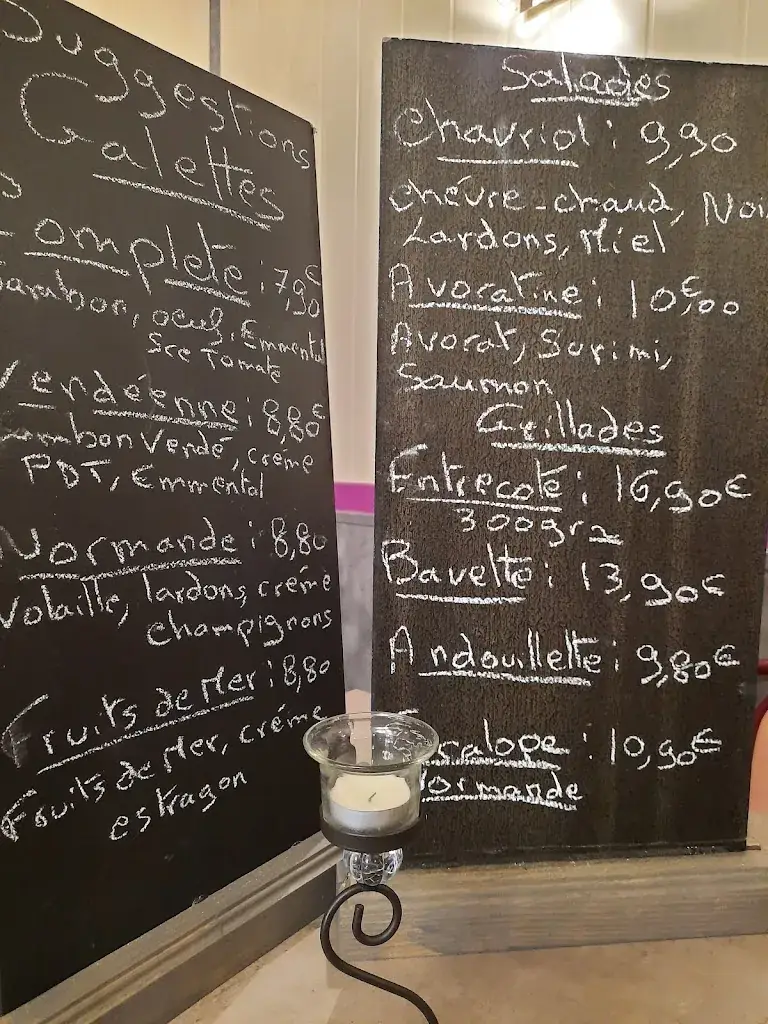 Suggestions
Galettes
Complète : 7,90€
Jambon, oeuf, Emmental
Sce Tomate
Vendéenne : 8,80€
Jambon Vendé, crème
PDT, Emmental
Normande : 8,80
Volaille, lardons, crème
champignons
Fruits de Mer : 8,80
Fruits de Mer, crème
estragon
Salades
Chavriol : 9,90
chèvre-chaud, Noi
Lardons, Miel
Avocatine : 10€,00
Avocat, Surimi,
Saumon
Grillades
Entrecote : 16,90€
300grs
Bavette : 13,90€
Andouillette : 9,80€
Escalope : 10,90€
Normande